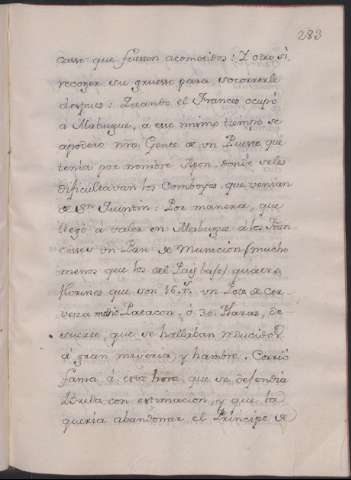 283
caso que fuesen acometidos: Y otro sí
recoger su gruesso para socorrerle
despues: Quando el Frances ocupó
á Mabuque, á esse mismo tiempo se
apoderó nra Gente de un Puente que
tenia por nombre Spon, donde se les
dificultavan los Comboyes que venian
de Sn. Quintin: Por manera, que
llegó á valer en Mabuque á los Fran
ceses un Pan de Municion (mucho
menos que los del Pais baxo) quatro
florines que son 16 Rs. un Pote de Cer
veza medio Patacon, o 30 Placas, de
suerte, que se hallaban reducidos
á gran miseria, y hambre. Corrió
fama á esta hora, que se defendia
con estimacion, y que la
queria abandonar el Principe de